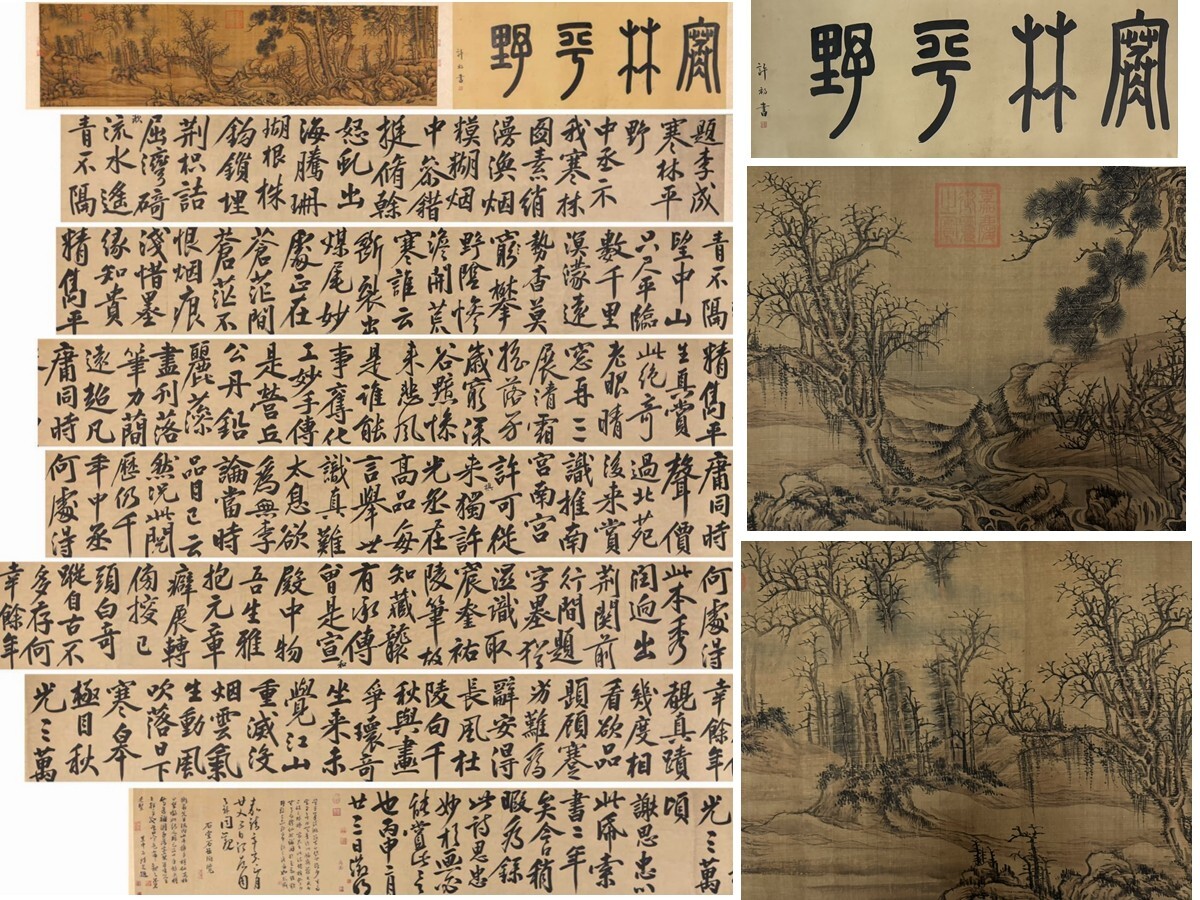 寒林平野
許初書
寒林平野
許初書
題李成
寒林平
野
中丞示
我寒林
圖素綃
漫渙烟
糢糊烟
中叅錯
挺脩幹
怒虬出
海騰珊
瑚根株
鈎鎖埋
荆枳詰
屈灣碕
淤
流水遙
青不隔
青不隔
望中山
只尺平臨
數千里
溟濛遠
勢杳莫
窮攀
澹開荒
野陰慘
寒誰云
斷裂出
煤尾妙
處正在
蒼茫間
蒼茫不
恨烟痕
淺惜墨
緣知貴
精雋平
精雋平
生真賞
此絕奇
老眼晴
窓再三
展清霜
搖落万
歲窮深
谷黯慘
來悲風
是誰能
事奪化
工妙手傳
是營丘
公丹鉛
麗藻
盡刋落
筆力蕳
遠超凡
庸同時
庸同時
聲價
過北苑
後來賞
識推南
宮南宮
許可從
來獨許
光丞在
髙品每
言舉世
識真難
太息欲
為無李
論當時
品目已云
然況此閱
歷仍千
年中丞
何處得
何處得
此本秀
闊迥出
荆関前
行間題
字墨猶
濕識取
宸奎祐
陵筆故
知藏襲
有承傳
曾是宣
殿中物
吾生雅
抱元章
癖展轉
傍搜已
頭白奇
蹤自古不
多存何
幸餘年
幸餘年
覩真蹟
幾度相
看欲品
題顧蹇
劣難為
辭安得
長風杜
陵句千
秋與畫
爭環奇
坐來未
覺江山
重滅沒
烟雲氣
生動風
吹落日下
寒臯
極目秋
光三萬
光三萬
頃
謝思忠以
此帋索
書三年
矣今稍
暇為錄
此詩思忠
妙於畫必
能賞此言
也丙申二月
廿三日徵明